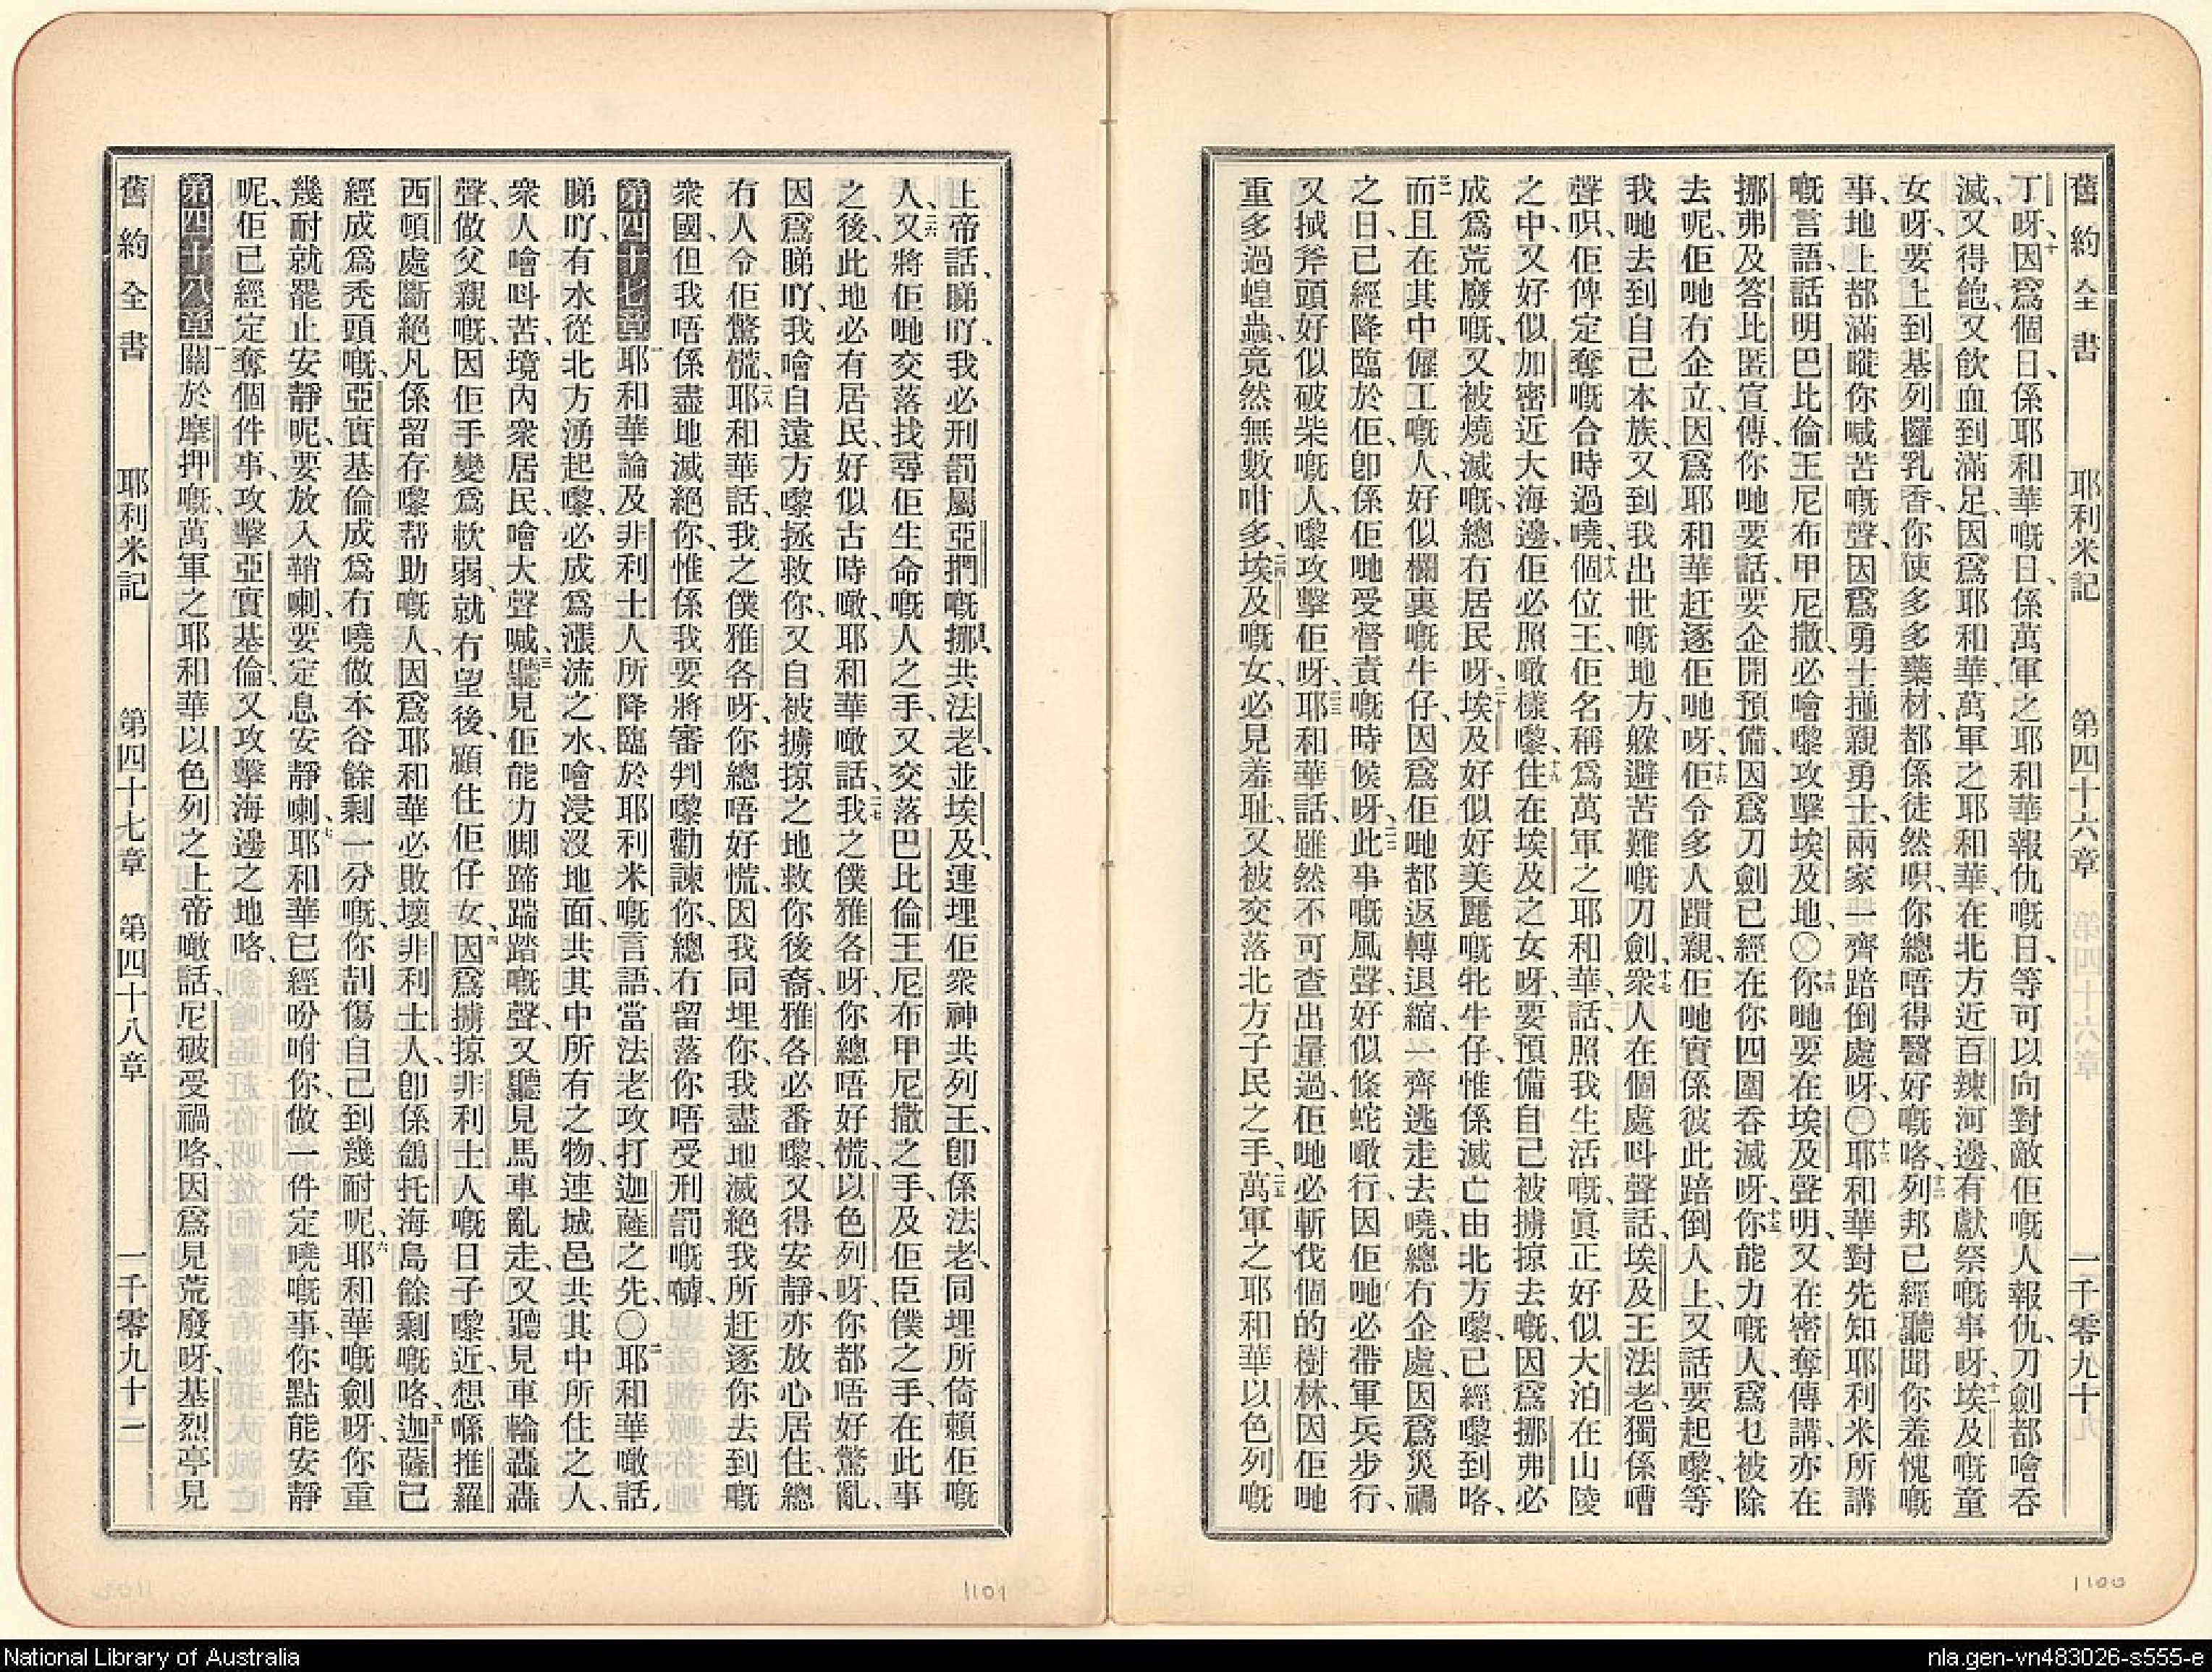 舊約全書 耶利米記 第四十六章 一千零九十
丁呀、十因爲個日、係耶和華嘅日、係萬軍之耶和華報仇嘅日、等可以向對敵佢嘅人報仇、刀劍都噲吞
滅、又得飽、又飲血到滿足、因爲耶和華、萬軍之耶和華、在北方近百辣河邊、有獻祭嘅事呀、十一埃及嘅童
女呀、要上到基列、攞乳香、你使多多藥材、都係徒然啫、你總唔得醫好嘅咯、十二列邦已經聽聞你羞愧嘅
事、地上都滿嘥你喊苦嘅聲、因爲勇士撞親勇士、兩家一齊踣倒處呀、〇十三耶和華對先知耶利米所講
嘅言語、話明巴比倫王尼布甲尼撒、必噲嚟攻擊埃及地、〇十四你哋要在埃及聲明、又在密奪傳講、亦在
挪弗及答比匿宣傳、你哋要話、要企開預備、因爲刀劍已經在你四圍吞滅呀、十五你能力嘅人、爲乜被除
去呢、佢哋冇企立、因爲耶和華赶逐佢哋呀、十六佢令多人躓親、佢哋實係彼此踣倒人上、又話要起嚟、等
我哋去到自己本族、又到我出世嘅地方、躱避苦難嘅刀劍、十七衆人在個處呌聲話、埃及王法老獨係嘈
聲啫、佢俾定奪嘅合時過嘵、十八個位王、佢名稱爲萬軍之耶和華、話、照我生活嘅、眞正好似大泊在山陵
之中、又好似加密近大海邊、佢必照噉樣嚟、十九住在埃及之女呀、要預備自己被擄掠去嘅、因爲挪弗必
成爲荒廢嘅、又被燒滅嘅、總冇居民呀、二十埃及好似好美麗嘅牝牛仔、惟係滅亡由北方嚟、已經嚟到咯、
二一而且在其中僱工嘅人、好似欄裏嘅牛仔、因爲佢哋都返轉退縮、一齊逃走去嘵、總冇企處、因爲災禍
之日、已經降臨於佢、卽係佢哋受督責嘅時候呀、二二此事嘅風聲、好似條蛇噉行、因佢哋必帶軍兵步行、
又拭斧頭好似破柴嘅人、嚟攻擊佢呀、二三耶和華話、雖然不可查出量過、佢哋必斬伐個的樹林、因佢哋
重多過蝗蟲、竟然無數咁多、二四埃及嘅女、必見羞耻、又被交落北方子民之手、二五萬軍之耶和華以色列嘅
上帝話、睇吖、我必刑罰屬亞捫嘅挪、共法老、並埃及、連埋佢衆神共列王、卽係法老、同埋所倚賴佢嘅
人、二六又將佢哋交落找尋佢生命嘅人之手、又交落巴比倫王尼布甲尼撒之手、及佢臣僕之手、在此事
之後、此地必有居民、好似古時噉、耶和華噉話、二七我之僕雅各呀、你總唔好慌、以色列呀、你都唔好驚亂、
因爲睇吖、我噲自遠方嚟拯救你、又自被擄掠之地、救你後裔、雅各必番嚟、又得安靜、亦放心居住、總
冇人令佢驚慌、二八耶和華話、我之僕雅各呀、你總唔好慌、因我同埋你、我盡地滅絕我所赶逐你去到嘅
衆國、但我唔係盡地滅絕你、惟係我要將審判嚟勸諫你、總冇留落你唔受刑罰嘅嚹、
第四十七章 一耶和華論及非利士人所降臨於耶利米嘅言語、當法老攻打迦薩之先、〇二耶和華噉話、
睇吖、有水從北方湧起嚟、必成爲漲流之水、噲浸沒地面、共其中所有之物、連城邑共其中所住之人、
衆人噲呌苦、境內衆居民、噲大聲喊、三聽見佢能力脚蹄踹踏嘅聲、又聽見馬車亂走、又聽見車輪轟轟
聲、做父親嘅、因佢手變爲軟弱、就冇望後、顧住佢仔女、四因爲擄掠非利士人嘅日子嚟近、想㗾推羅
西頓處斷絕凡係留存嚟帮助嘅人、因爲耶和華必敗壞非利士人、卽係鴿托海島餘剩嘅咯、五迦薩已
經成爲禿頭嘅、亞實基倫成爲冇嘵、做本谷餘剩一分嘅、你剖傷自己到幾耐呢、六耶和華嘅劍呀、你重
幾耐就罷止安靜呢、要放入鞘喇、要定息安靜喇、七耶和華已經吩咐你做一件定嘵嘅事、你點能安靜
呢、佢已經定奪個件事、攻擊亞實基倫、又攻擊海邊之地咯、
第四十八章 一關於摩押嘅、萬軍之耶和華以色列之上帝噉話、尼破受禍咯、因爲見荒廢呀、基烈亭見
舊約全書 耶利米記 第四十七章 第四十八章 一千零九十一
1100
1101
National Library of Australia
nla.gen-vn483026-s555-e